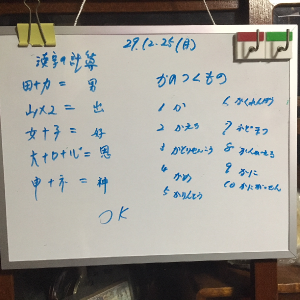 29.12.25(月)
漢字の計算
田+力= 男
山×2 = 出
女+子= 好
大+口+心= 恩
申+ネ= 神
OK
かのつくもの
1 か
2 かえる
3 かとりせんこう
4 かめ
5 かりんとう
6 かくれんぼ
7 かどまつ
9 かに
10 かにがっせん